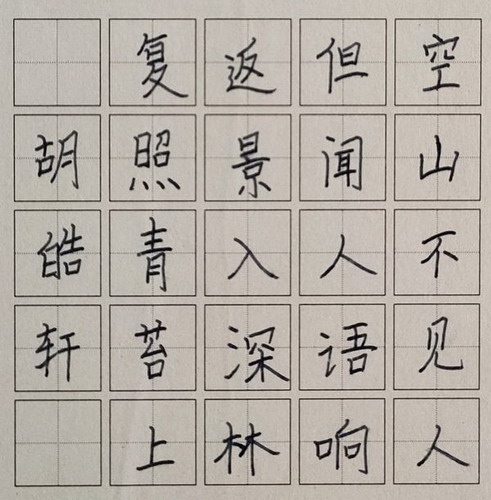 空山不见人
但闻人语响
返景入深林
复照青苔上
胡皓轩